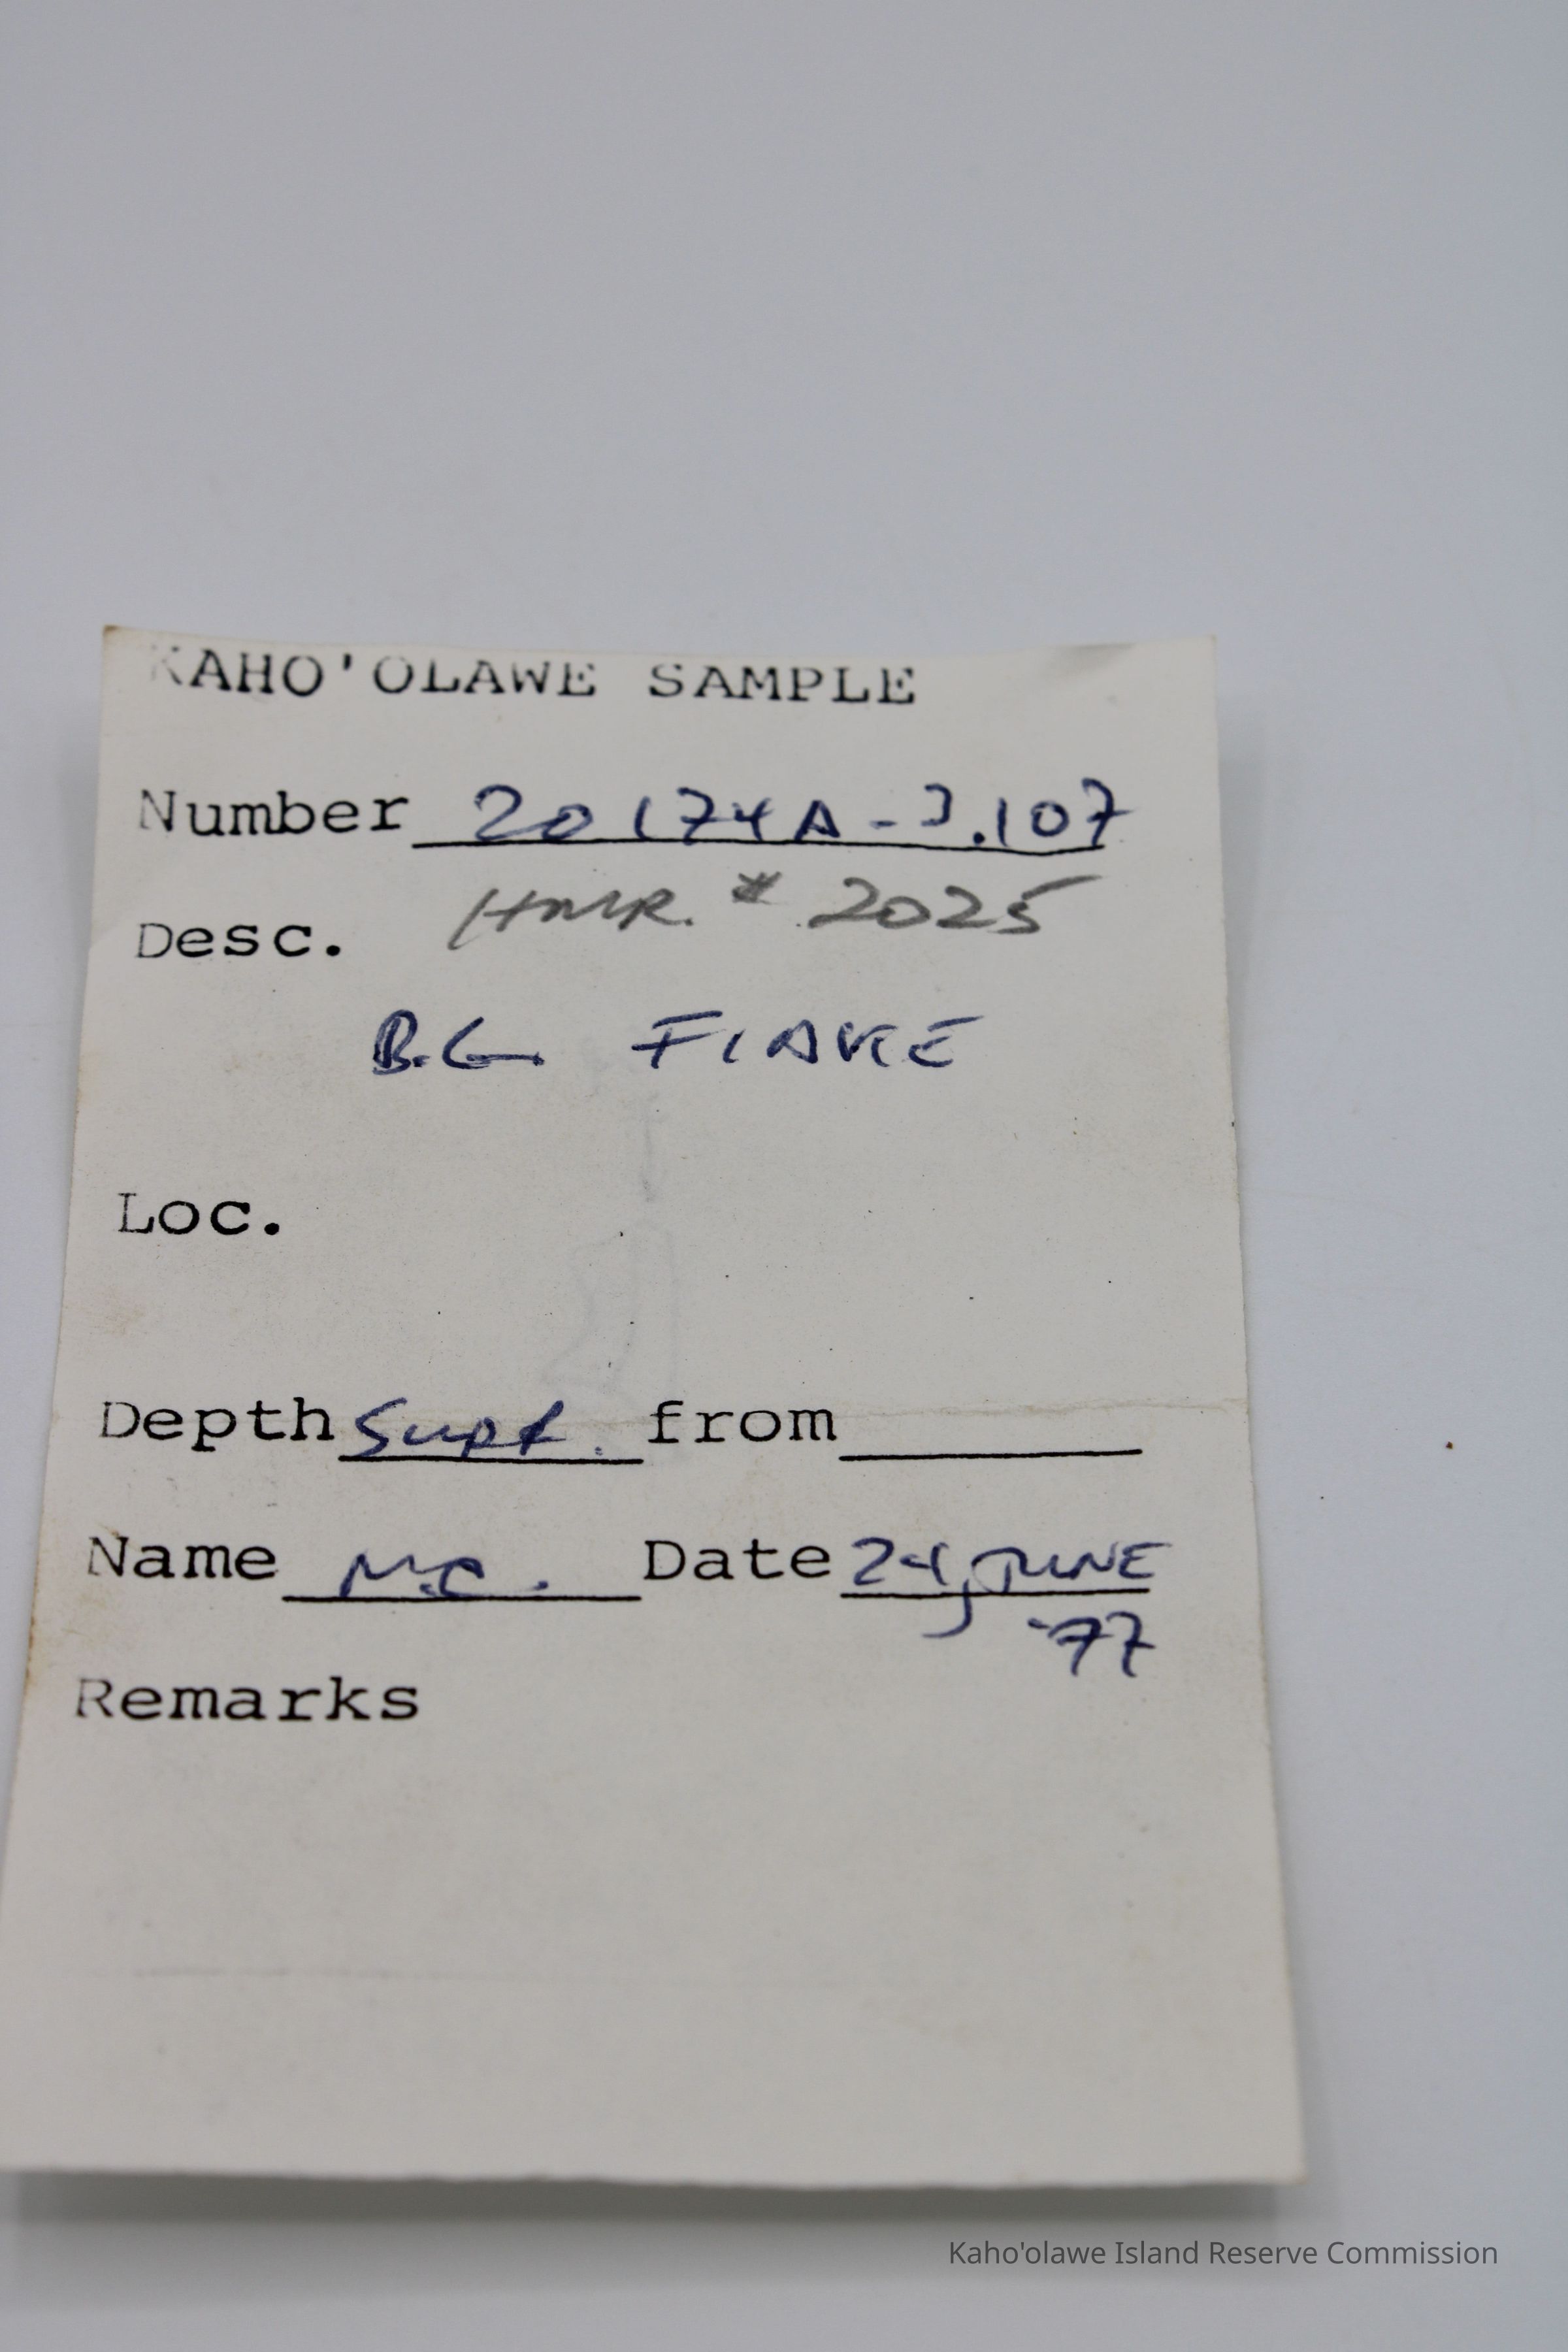 KAHO'OLAWE SAMPLE
Number 20174A-3.107
Desc. # 2025
B.G. FLAKE
Loc.
Depth Surf. from
Name M.C. Date 24 JUNE
'77
Remarks
Kaho'olawe Island Reserve Commission